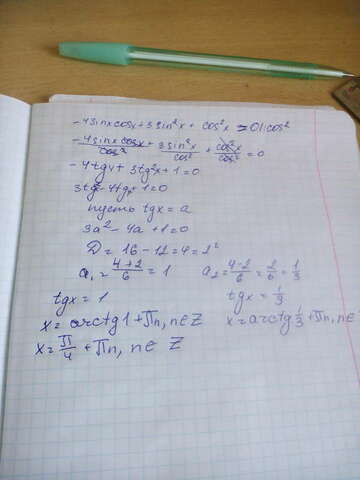 -4sinxcosx+3sin²x + cos²x = 0 |: cos²
-4sinxcosx/cos² + 3sin²x/cos² + cos²x/cos² = 0
-4tgx + 3tg²x + 1 = 0
3tg²-4tgx 1=0
пусть tgx = a
3a² - 4a + 1 = 0
D = 16 - 12 = 4 = 2²
a₁ = 4+2/6 = 1 a₂ = 4-2/6 = 2/6 = 1/3
tgx = 1 tgx = 1/3
x = arctg1 + πn, n∈Z x = arctg 1/3 + πn, n∈
x = π/4 + πn, n∈ Z